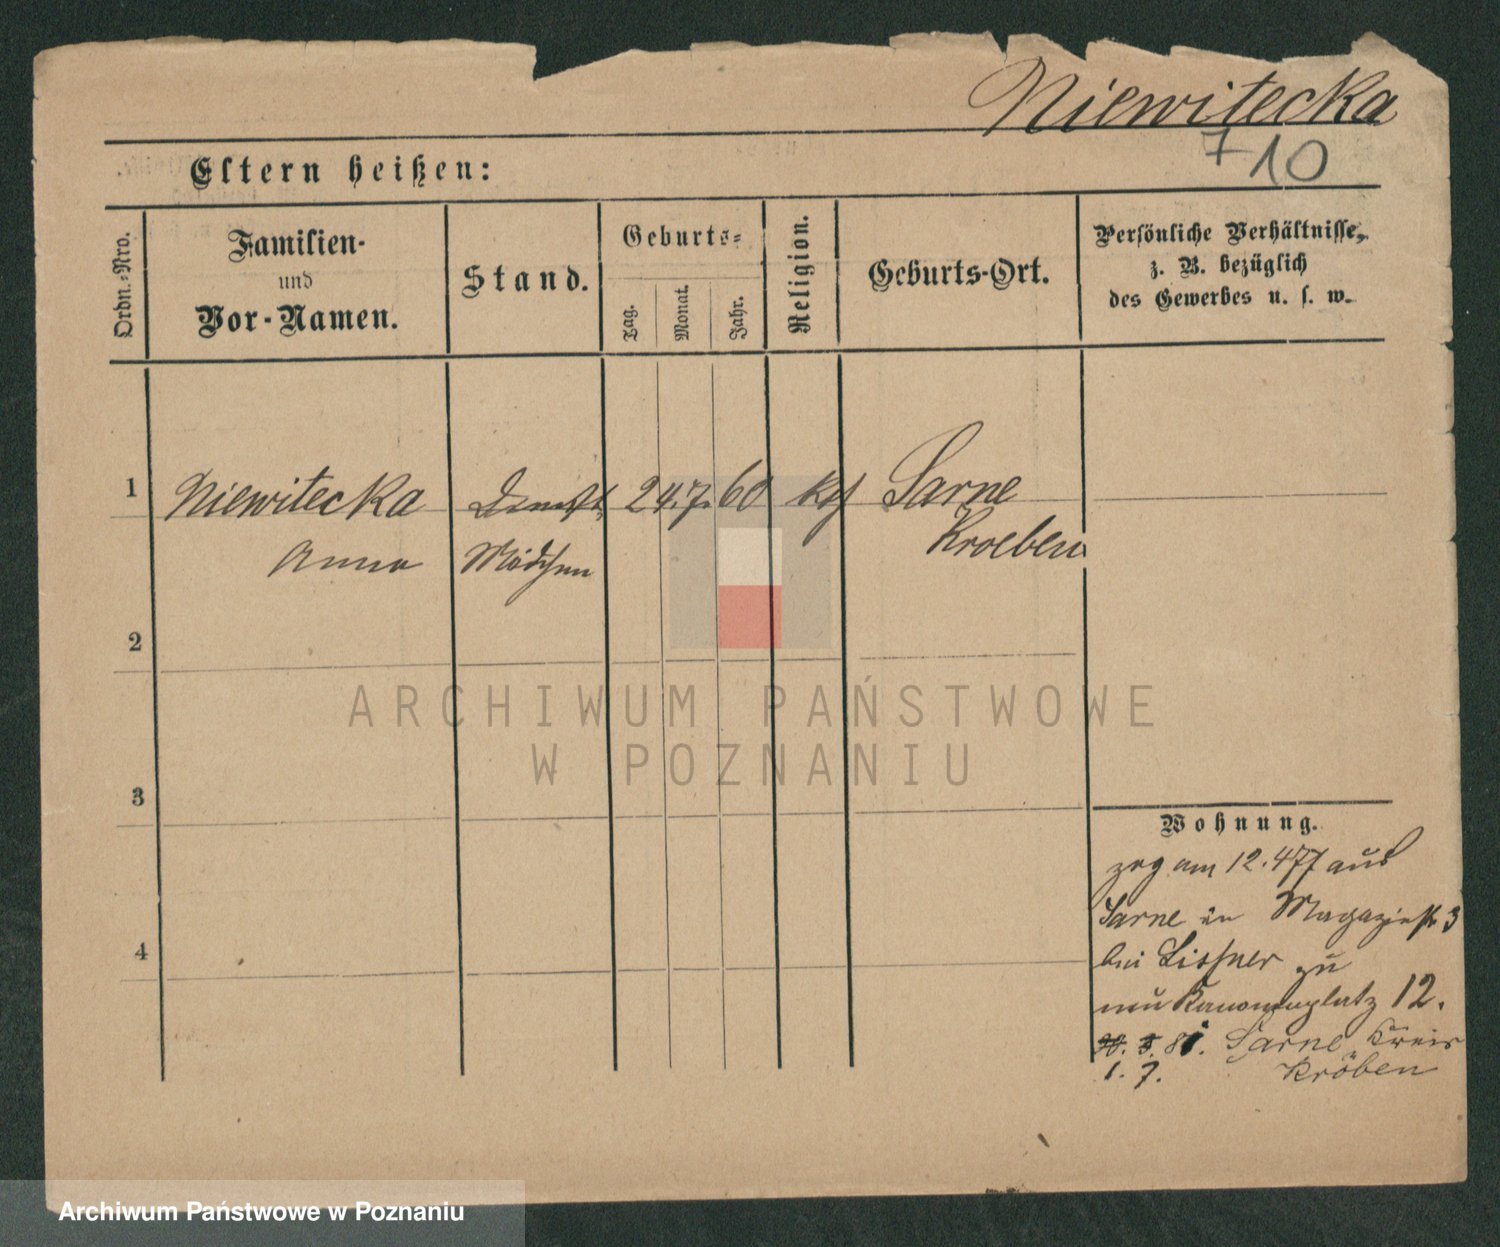 Niewitecka
7 10
Eltern heißen:
Ordn.-Nro.
Familien-
und
Vor-Namen.
Stand.
Geburts-
Tag.
Monat.
Jahr.
Religion.
Geburts-Ort.
Persönliche Verhältnisse,
z. B. bezüglich
des Gewerbes u. s. w.
1 Niewitecka Dienst 24. 7. 60 kth Sarne
Kroeben
Anna Mädchen
2
3
4
Wohnung.
zog am 12. 4 77 aus
Sarne in Magazinstr 3
bei Lissner zu
neu Kanonenplatz 12.
81. Sarne Kreis
1. 7. Kröben
ARCHIWUM PAŃSTWOWE
W POZNANIU
Archiwum Państwowe w Poznaniu